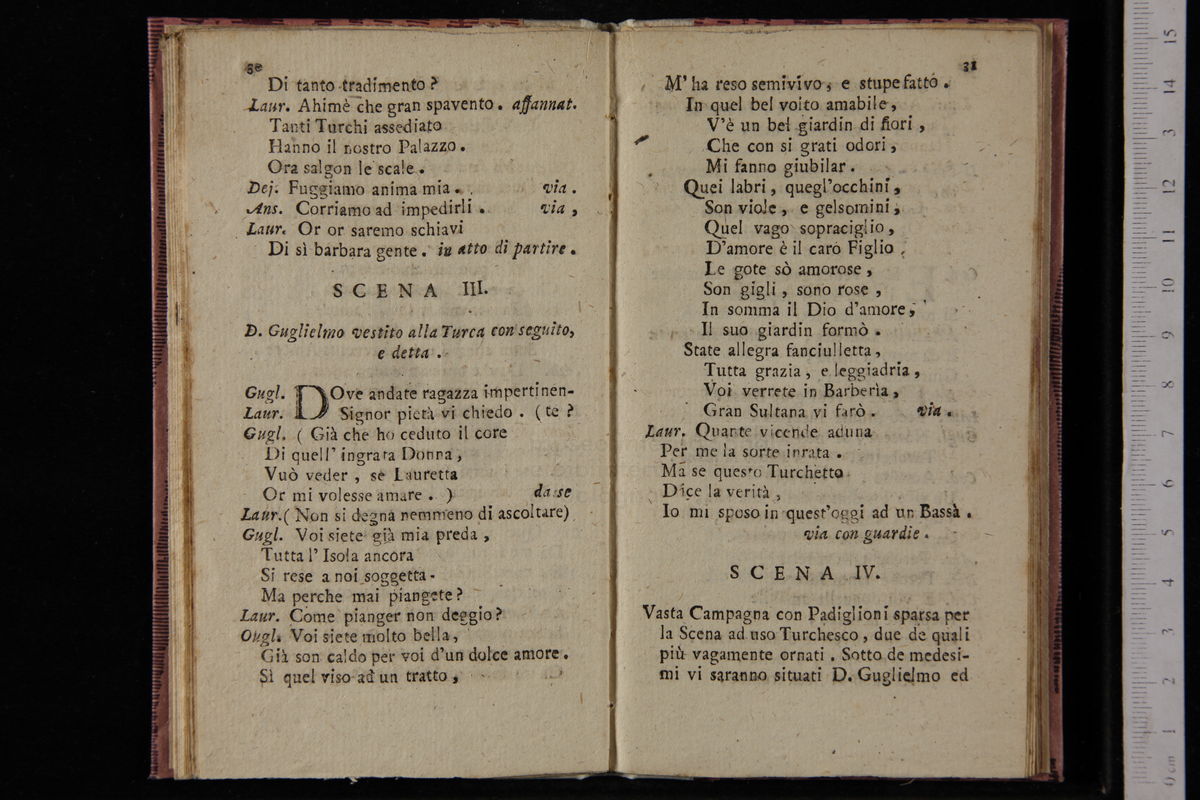 30
Di tanto tradimento?
Laur. Ahimè che gran spavento. affannat.
Tanti Turchi assediato
Hanno il nostro Palazzo.
Ora salgon le scale.
Dej. Fuggiamo anima mia. via.
Ans. Corriamo ad impedirli. via,
Laur. Or or saremo schiavi
Di sì barbara gente. in atto di partire.
SCENA III.
D. Guglielmo vestito alla Turca con seguito,
e detta.
Gugl. DOve andate ragazza impertinen-
Laur. Signor pietà vi chiedo. (te?
Gugl. (Già che ho ceduto il core
Di quell' ingrata Donna,
Vuò veder, se Lauretta
Or mi volesse amare. ) da se
Laur. (Non si degna nemmeno di ascoltare)
Gugl. Voi siete già mia preda,
Tutta l' Isola ancora
Si rese a noi soggetta.
Ma perche mai piangete?
Laur. Come pianger non deggio?
Gugl. Voi siete molto bella,
Già son caldo per voi d'un dolce amore.
Sì quel viso ad un tratto,
31
M' ha reso semivivo, e stupefatto.
In quel bel volto amabile,
V'è un bel giardin di fiori,
Che con si grati odori,
Mi fanno giubilar.
Quei labri, quegl'occhini,
Son viole, e gelsomini,
Quel vago sopraciglio,
D'amore è il caro Figlio,
Le gote sò amorose,
Son gigli, sono rose,
In somma il Dio d'amore,
Il suo giardin formò.
State allegra fanciulletta,
Tutta grazia, e leggiadria,
Voi verrete in Barberia,
Gran Sultana vi farò. via.
Laur. Quante vicende aduna
Per me la sorte inrata.
Ma se questo Turchetto
Dice la verità,
Io mi sposo in quest'oggi ad un Bassà.
via con guardie.
SCENA IV.
Vasta Campagna con Padiglioni sparsa per
la Scena ad uso Turchesco, due de quali
più vagamente ornati. Sotto de medesi-
mi vi saranno situati D. Guglielmo ed
15
14
13
12
11
10
9
8
7
6
5
4
3
2
1
0 cm